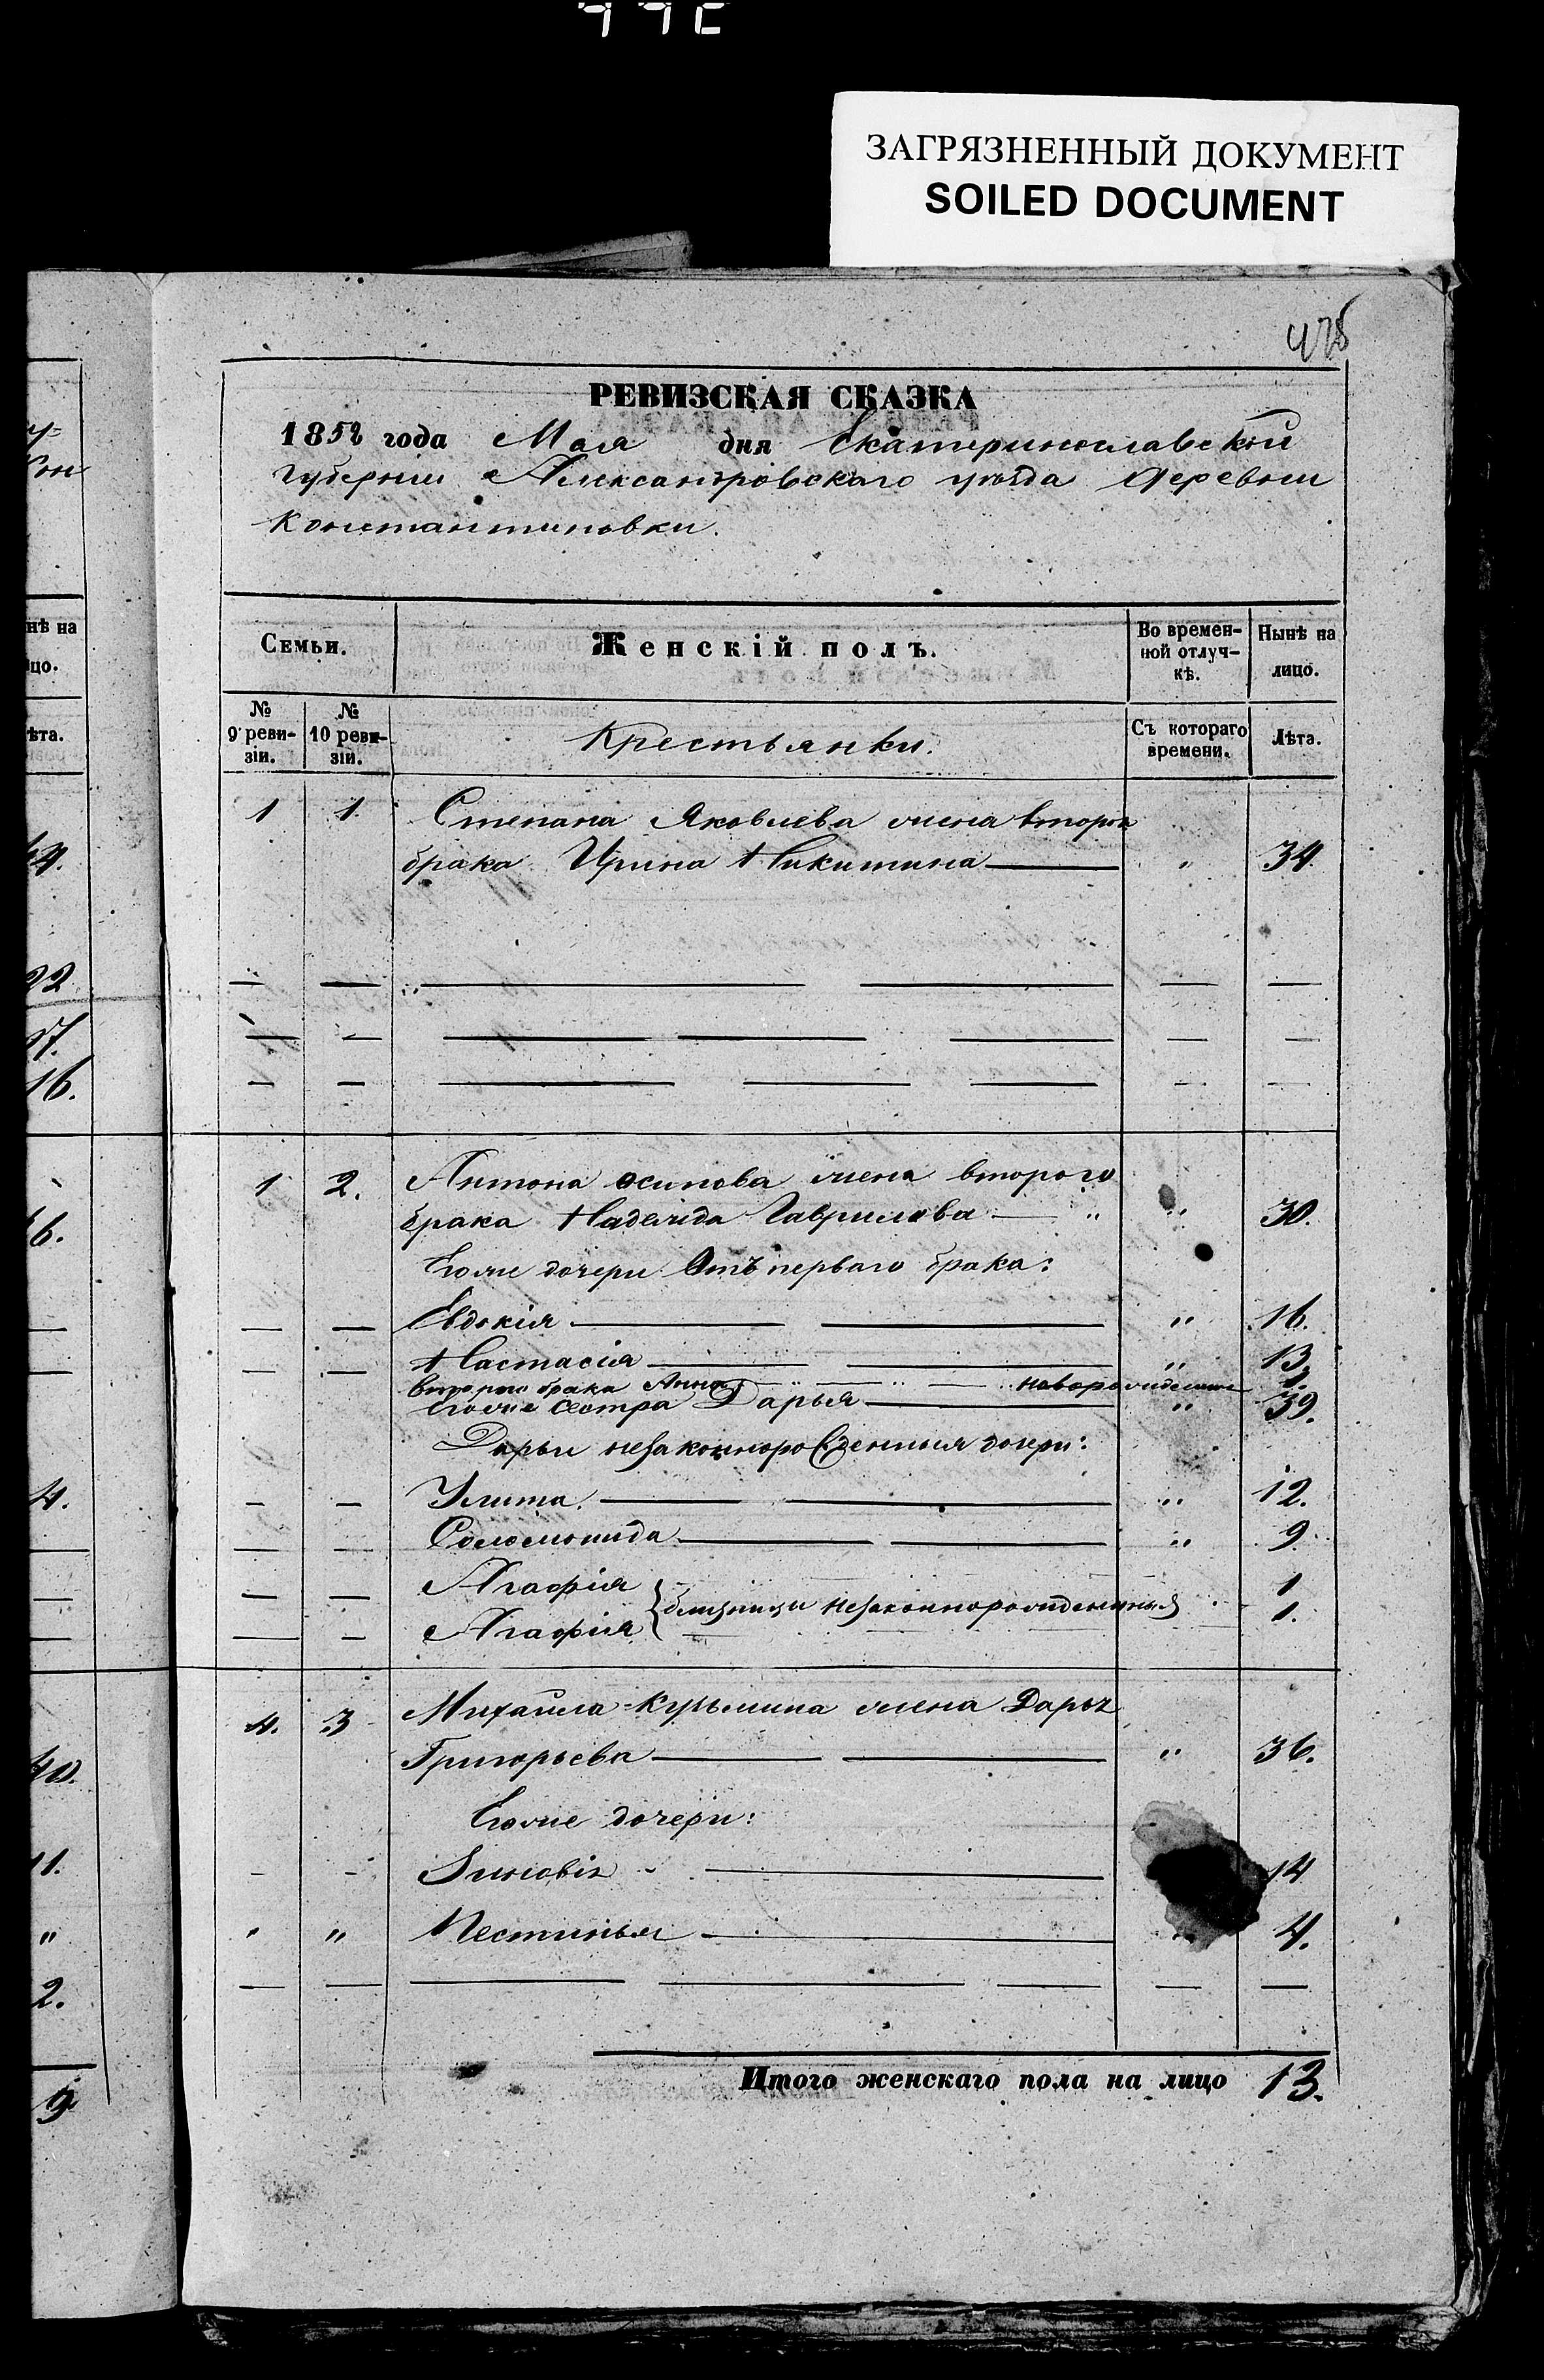 ЗАГРЯЗНЕННЫЙ ДОКУМЕНТ
SOILED DOCUMENT
РЕВИЗСКАЯ СКАЗКА
1858 года Мая дня Екатеринославской
губерніи Александровскаго уѣзда Деревни
Константиновки.
Семьи. Женскій полъ. Во времен- Нынѣ на
ной отлуч- лицо.
кѣ.
№ № Крестьянки. Съ котораго Лѣта.
9 реви- 10 реви- времени.
зіи. зіи.
1 1. Степана Яковлева жена второго
брака Ирина Никитина — " 34.
1 2. Антона Осипова жена второго
брака Надежда Гаврилова — " " 30.
Егоже дочери Отъ перваго брака:
— — Евдокія — " 16.
— — Настасия — " 13.
Второго брака Анна — новорожденная 1.
Егоже Сестра Дарья — " 39.
Дарьи незаконнорожденныя дочери:
— — Улита. — " 12.
— — Соломонида — " 9.
— — Агафія 1
{близнецы незаконнорожденныя
— — Агафія 1.
4. 3 Михаила Кузьмина жена Дарья
Григорьева — " 36.
Егоже дочери:
- - Зиновія — 14
" " Пестинья — " 4.
Итого женскаго пола на лицо 13.
нѣ на
цо.
ѣта.
22
16.
6.
4.
40.
11.
"
2.
9